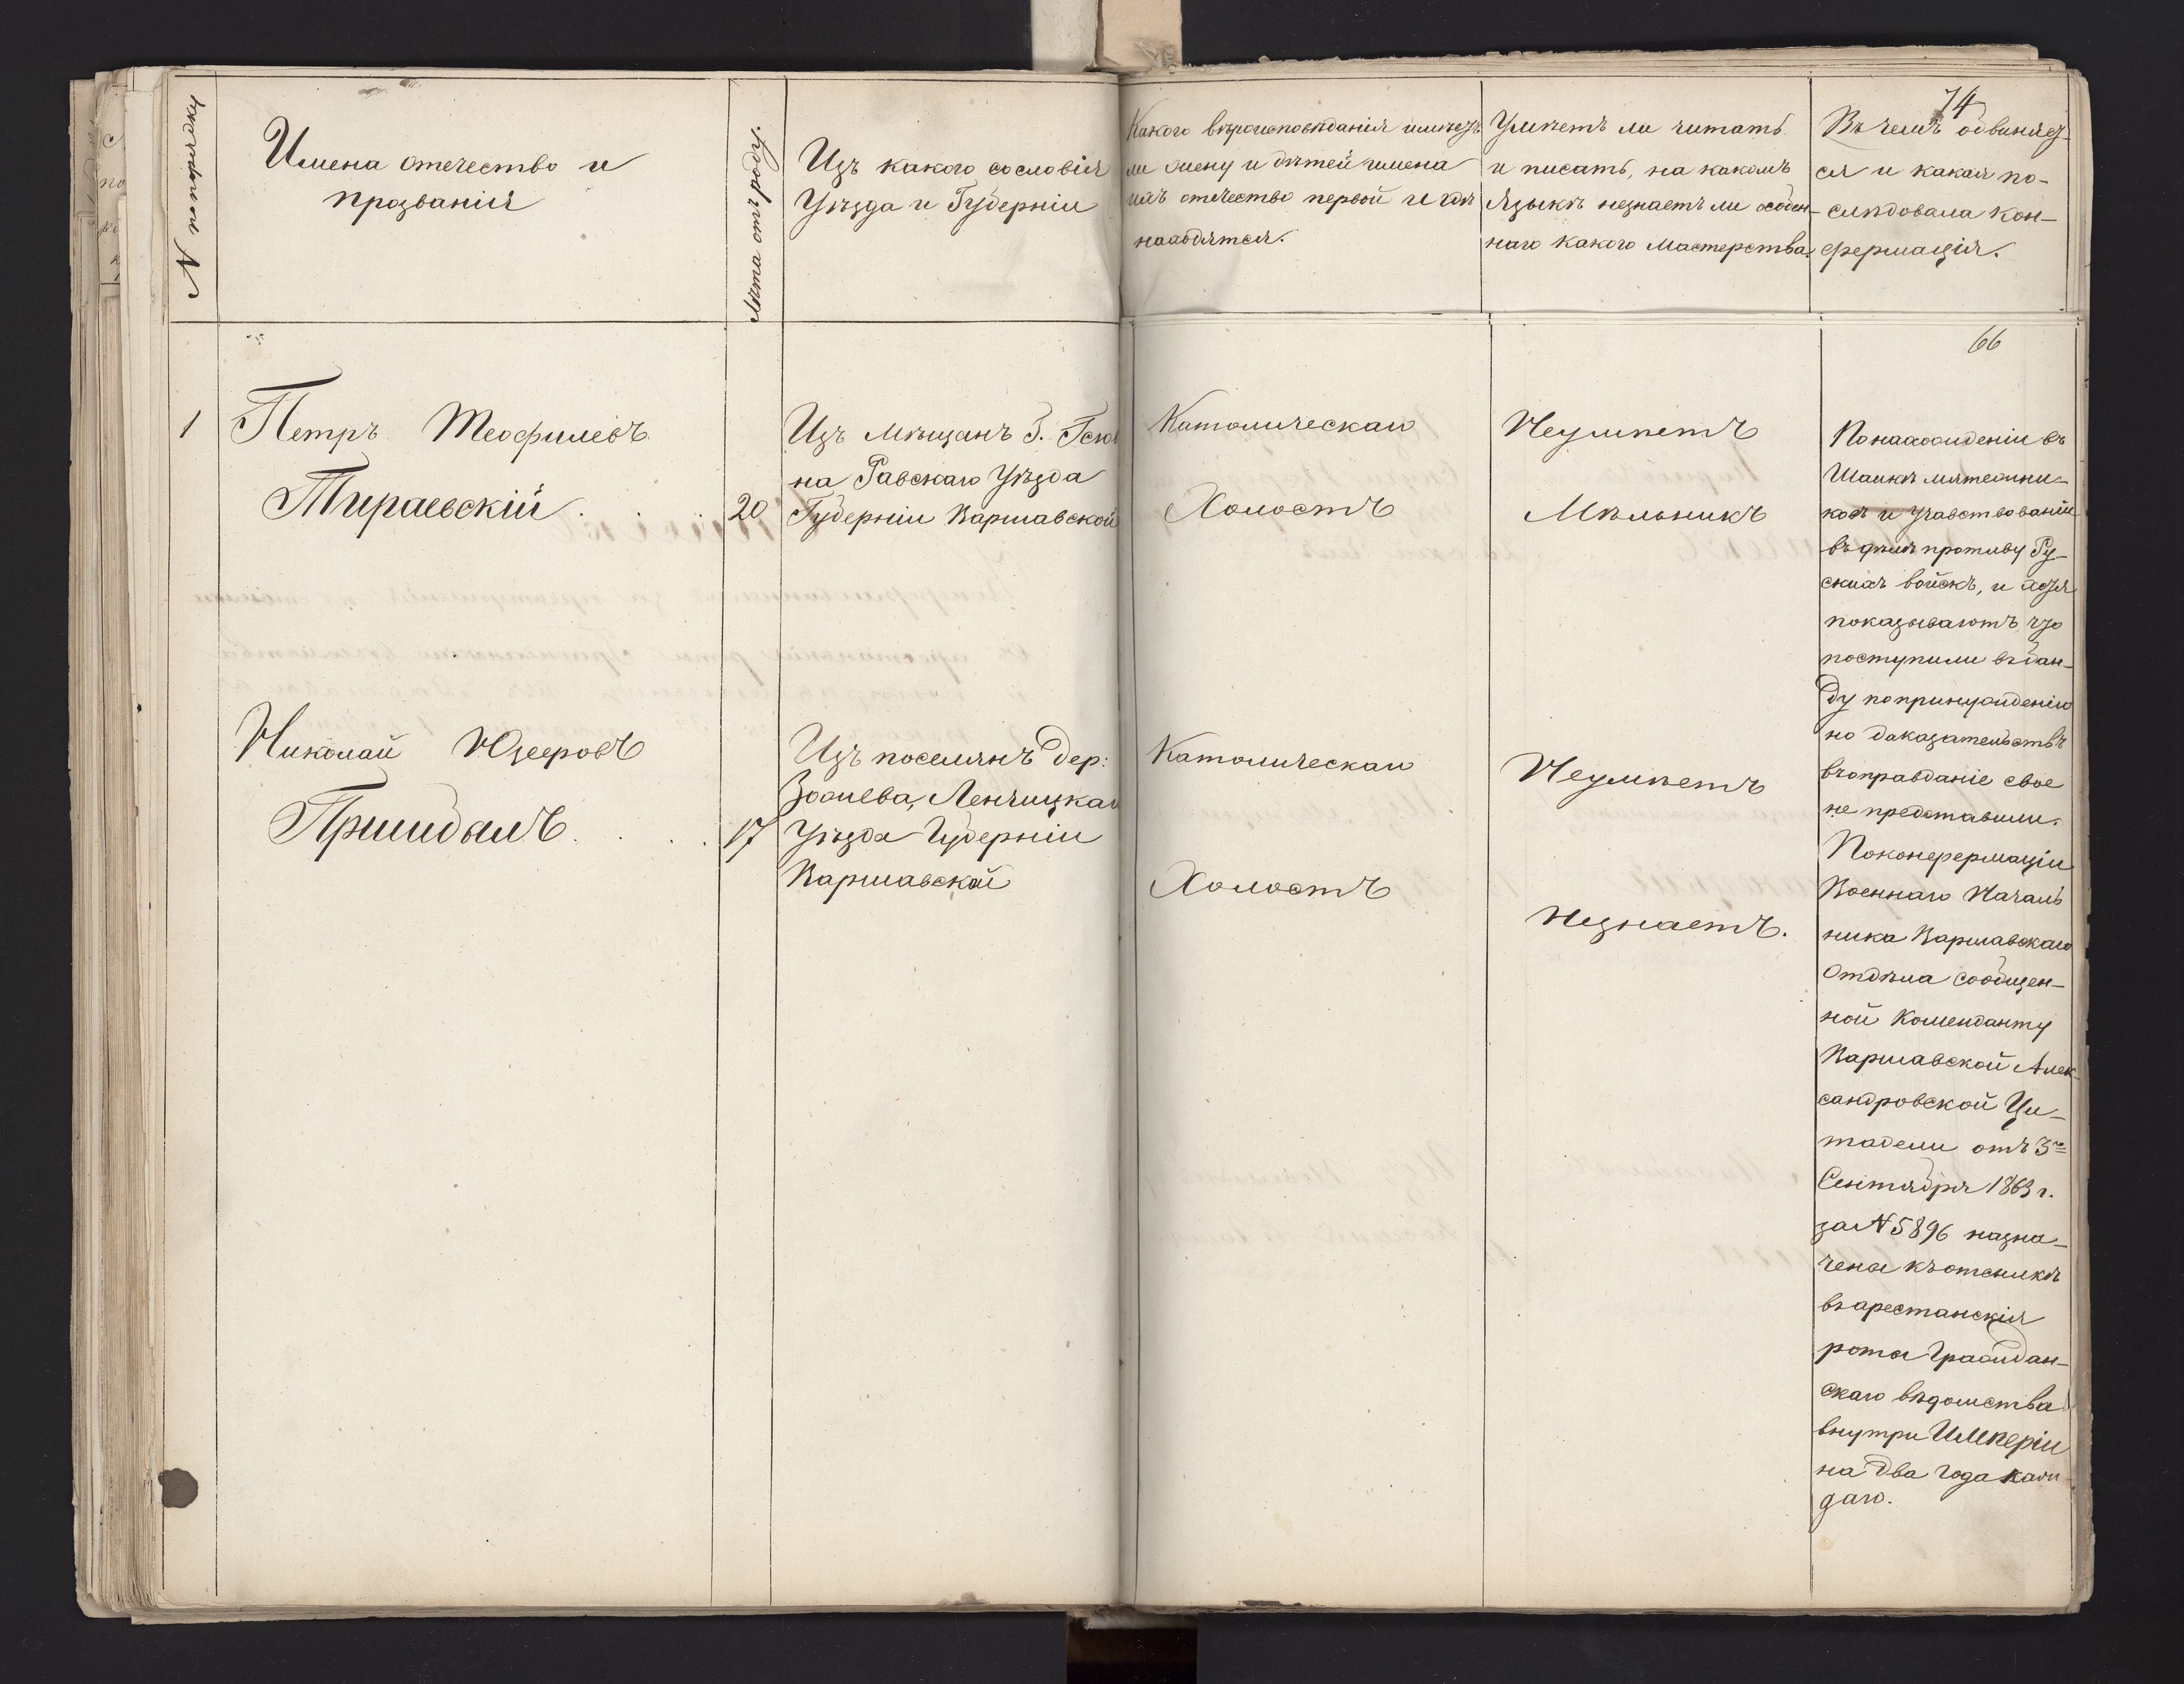 74
N по порядку
Имена отечество и
прозванія
Лѣта отъ роду.
Изъ какого сословія
Уѣзда и Губерніи
Какого вѣроисповѣданія имѣетъ
ли жену и дѣтей имена
ихъ отечество первой и гдѣ
находятся.
Умѣетъ ли читать
и писать, на какомъ
языкѣ незнаетъ ли особен-
наго какого мастерства.
Въ чемъ обвиняет-
ся и какая по-
слѣдовала кон-
фермація.
66
1
Петръ Теофилевъ
Тираевскій
20
Изъ мѣщанъ
на Равскаго Уѣзда
Губерніи Варшавской
Католическаго
Холостъ
Неумѣетъ
Мѣльникъ
Николай Юзеровъ
Пршидалъ
17
Изъ поселянъ дер:
Ленчицкаго
Уѣзда Губерніи
Варшавской
Католическаго
Холостъ
Неумѣетъ
Незнаетъ.
Понахожденіи въ
Шайкѣ мятежни-
ковъ и учавствованіи
въ дѣлѣ противу Ру-
скихъ войскъ, и хотя
показываютъ что
поступили въ бан-
ду попринужденію
но доказательствъ
въоправданіе свое
не представили.
Поконфермаціи
Военнаго Началь
ника Варшавскаго
Отдѣла сообщен-
ной Коменданту
Варшавской Алек-
сандровской Ци-
тадели отъ 3го
Сентября 1863 г.
за N 5896 назна-
чены къ отсылкѣ
въ арестанскія
роты Граждан-
скаго вѣдомства
внутри Имперіи
на два года каж-
даго.